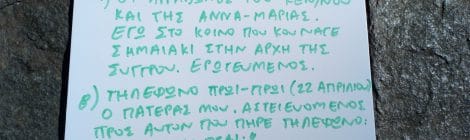 ΚΑΙ ΤΗΣ ΑΝΝΑ-ΜΑΡΙΑΣ.
ΕΓΩ ΣΤΟ ΚΟΙΝΟ ΠΟΥ ΚΟΥΝΑΓΕ
ΣΗΜΑΙΑΚΙ ΣΤΗΝ ΑΡΧΗ ΤΗΣ
ΣΥΓΓΡΟΥ. ΕΡΩΤΕΥΜΕΝΟΣ.
β) ΤΗΛΕΦΩΝΟ ΠΡΩΙ-ΠΡΩΙ (22 ΑΠΡΙΛΙΟΥ)
Ο ΠΑΤΕΡΑΣ ΜΟΥ, ΑΣΤΕΙΕΥΟΜΕΝΟΣ
ΠΡΟΣ ΑΥΤΟΝ ΠΟΥ ΠΗΡΕ ΤΗΛΕΦΩΝΟ: